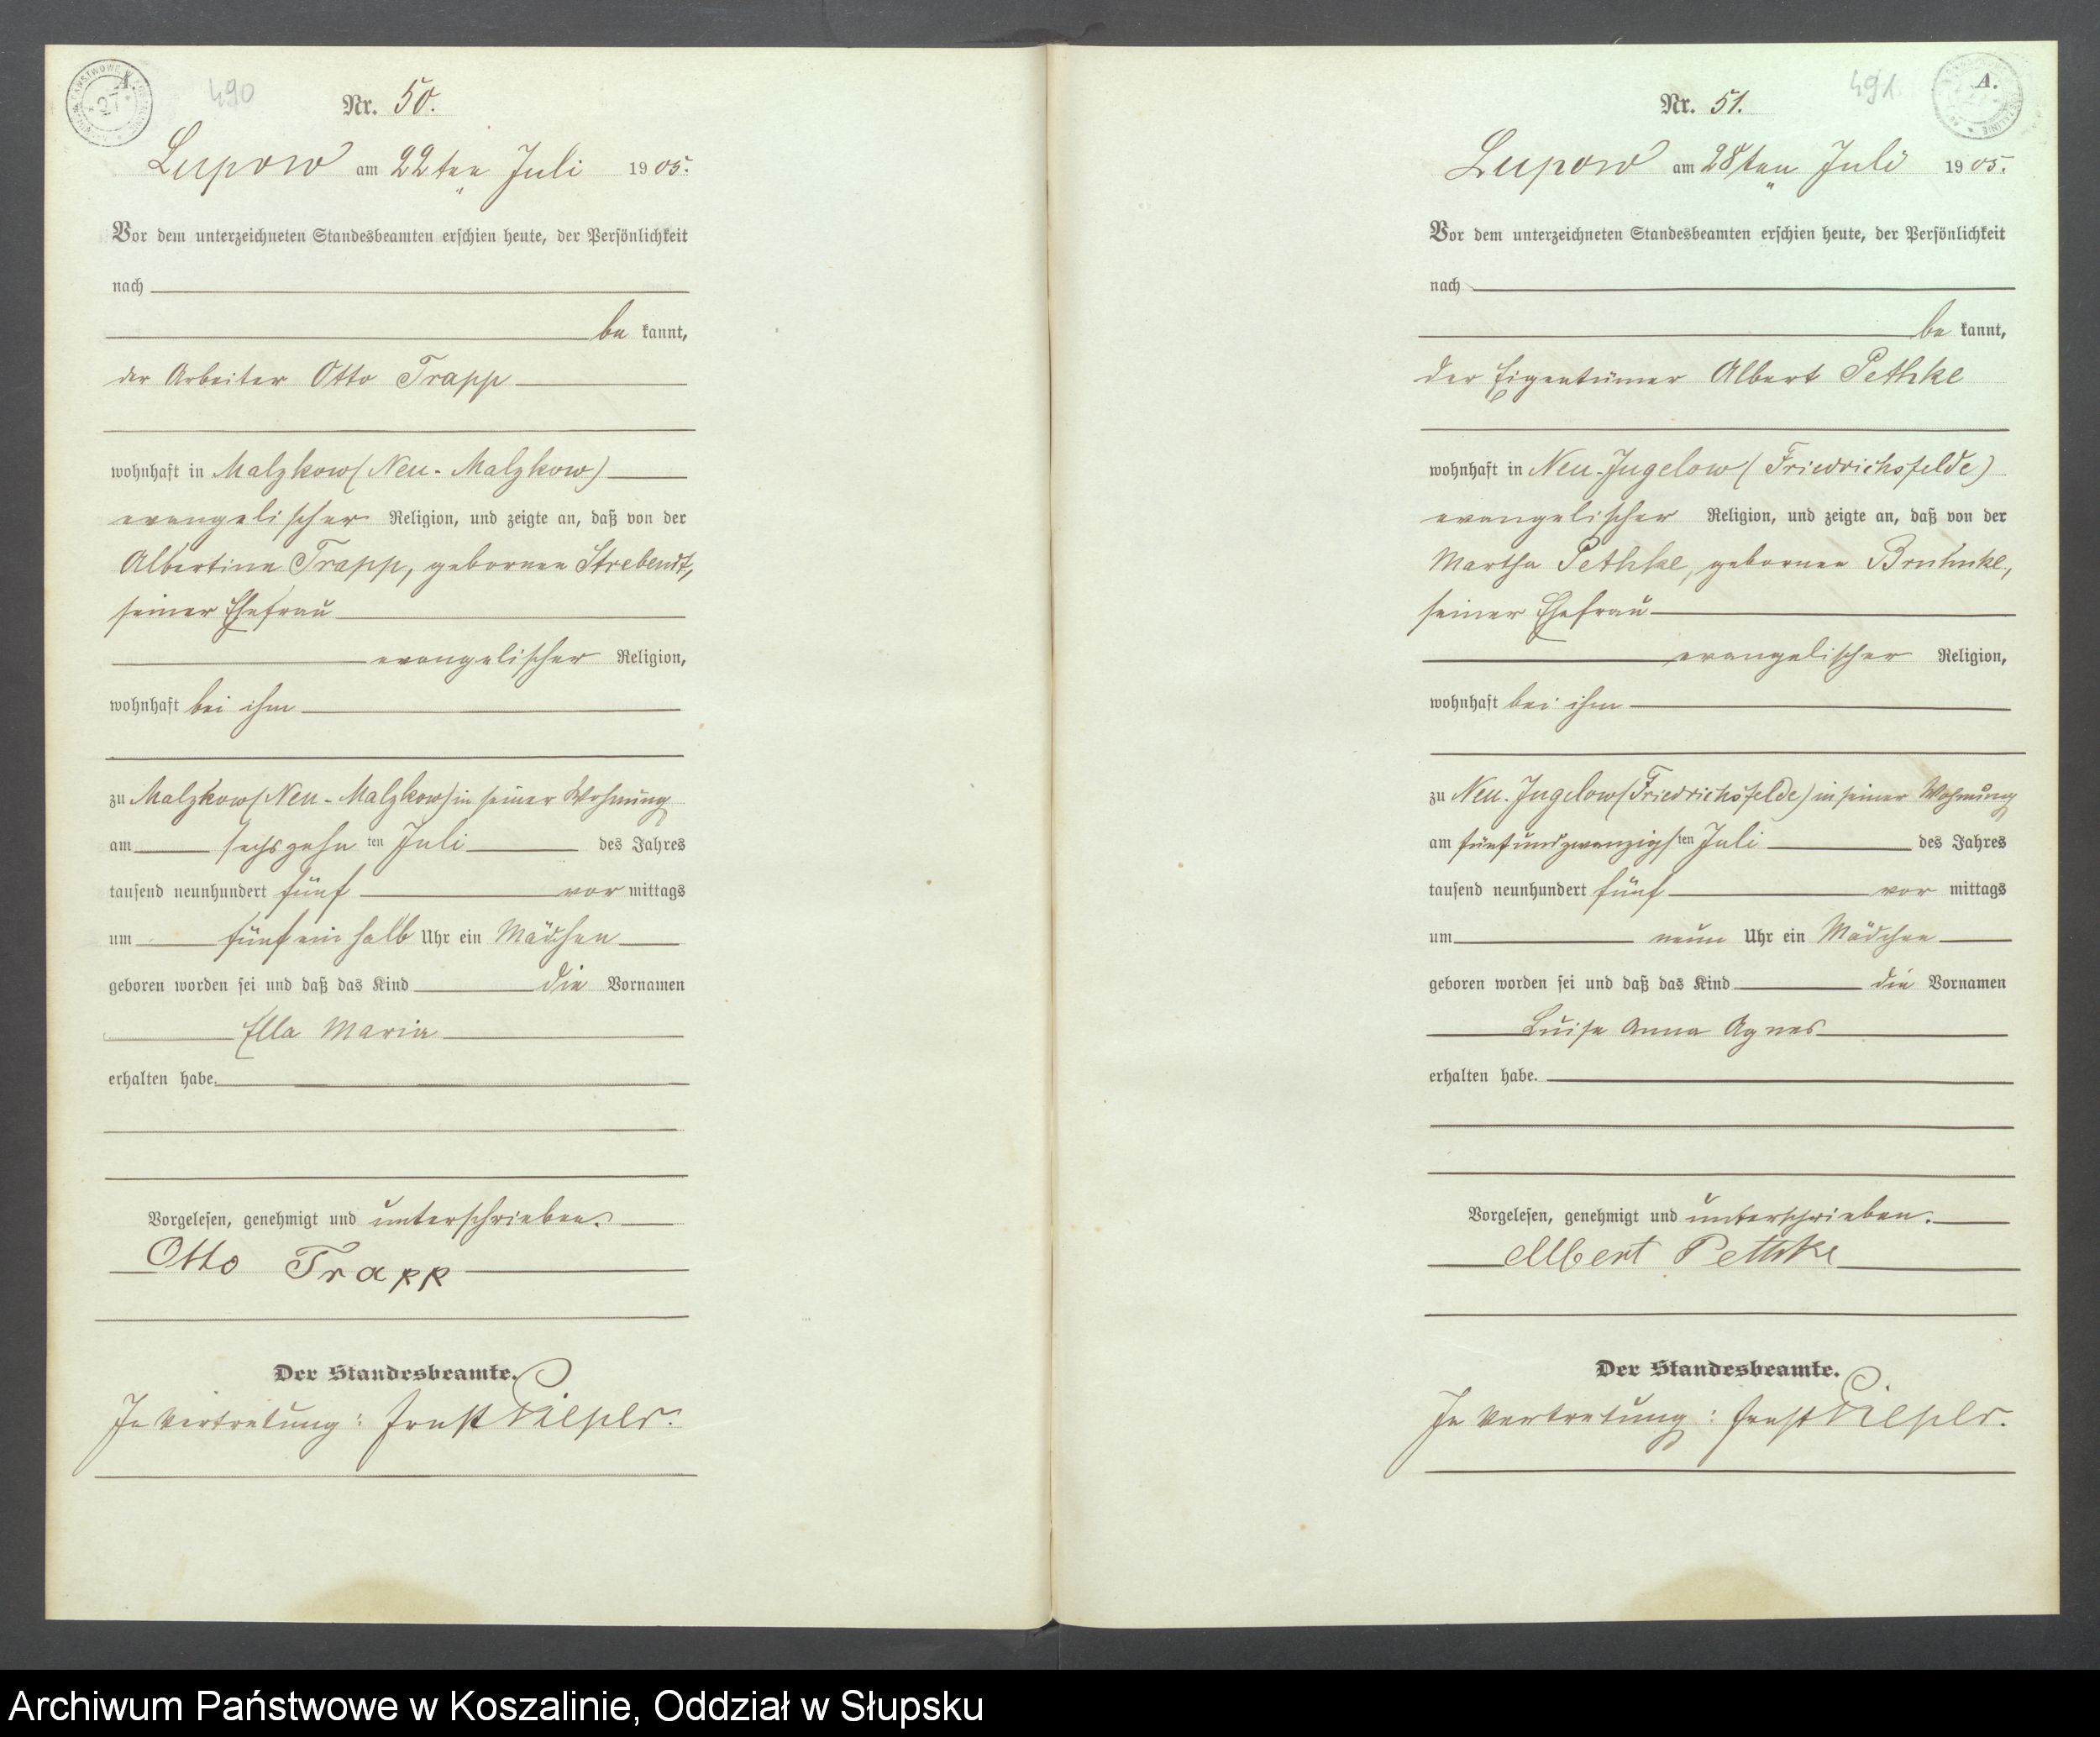 A.
490
Nr. 50.
Lupow am 22ten Juli 1905.
Vor dem unterzeichneten Standesbeamten erschien heute, der Persönlichkeit
nach
be kannt,
der Arbeiter Otto Trapp
wohnhaft in Malzkow (Neu-Malzkow)
evangelischer Religion, und zeigte an, daß von der
Albertine Trapp, gebornen Strebendt,
seiner Ehefrau
evangelischer Religion,
wohnhaft bei ihm
zu Malzkow (Neu-Malzkow) in seiner Wohnung
am sechszehn ten Juli des Jahres
tausend neunhundert fünf vor mittags
um fünf ein halb Uhr ein Mädchen
geboren worden sei und daß das Kind die Vornamen
Ella Maria
erhalten habe.
Vorgelesen, genehmigt und unterschrieben.
Otto Trapp
Der Standesbeamte.
In Vertretung: Ernst
491
A.
Nr. 51.
Lupow am 28ten Juli 1905.
Vor dem unterzeichneten Standesbeamten erschien heute, der Persönlichkeit
nach
be kannt,
der Eigentümer Albert Pethke
wohnhaft in Neu-Jugelow (Friedrichsfelde)
evangelischer Religion, und zeigte an, daß von der
Martha Pethke, gebornen
seiner Ehefrau
evangelischer Religion,
wohnhaft bei ihm
zu Neu-Jugelow (Friedrichsfelde) in seiner Wohnung
am fünfundzwanzigs ten Juli des Jahres
tausend neunhundert fünf vor mittags
um neun Uhr ein Mädchen
geboren worden sei und daß das Kind die Vornamen
Luise Anna Agnes
erhalten habe.
Vorgelesen, genehmigt und unterschrieben.
Albert Pethke
Der Standesbeamte.
In Vertretung: Ernst
Archiwum Państwowe w Koszalinie, Oddział w Słupsku